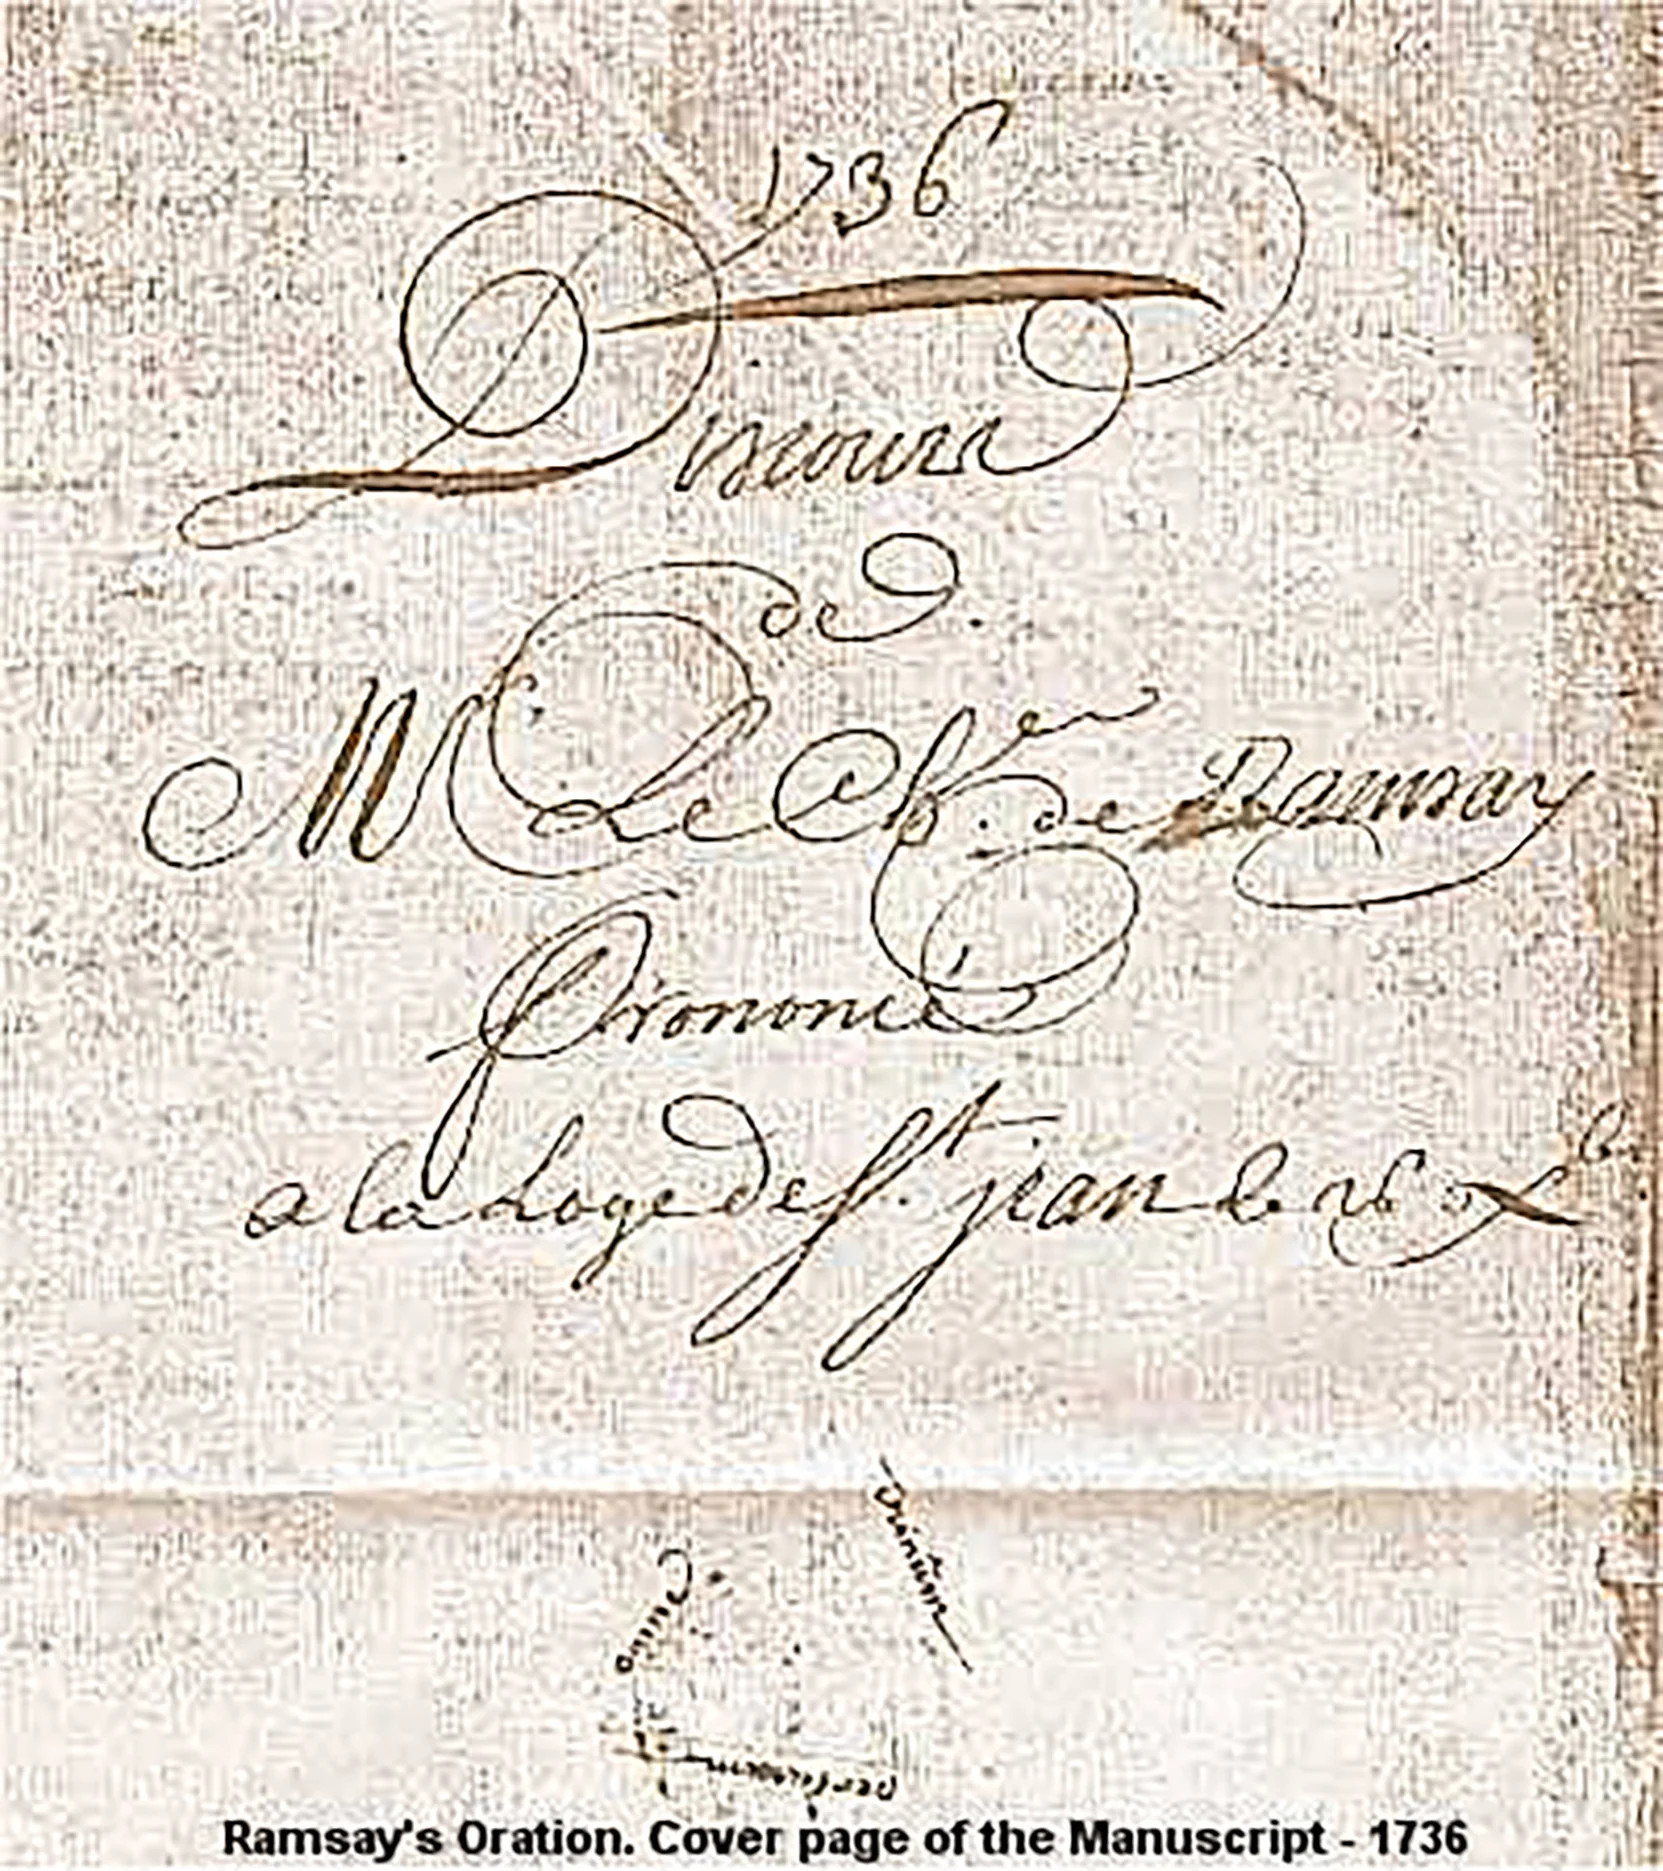 1736
Discours
de
Mr Le Cher. de Ramsay
Prononcé
a la Loge de St. jean le 26 Xbr
omne
trinum
perfectum
Ramsay's Oration. Cover page of the Manuscript - 1736